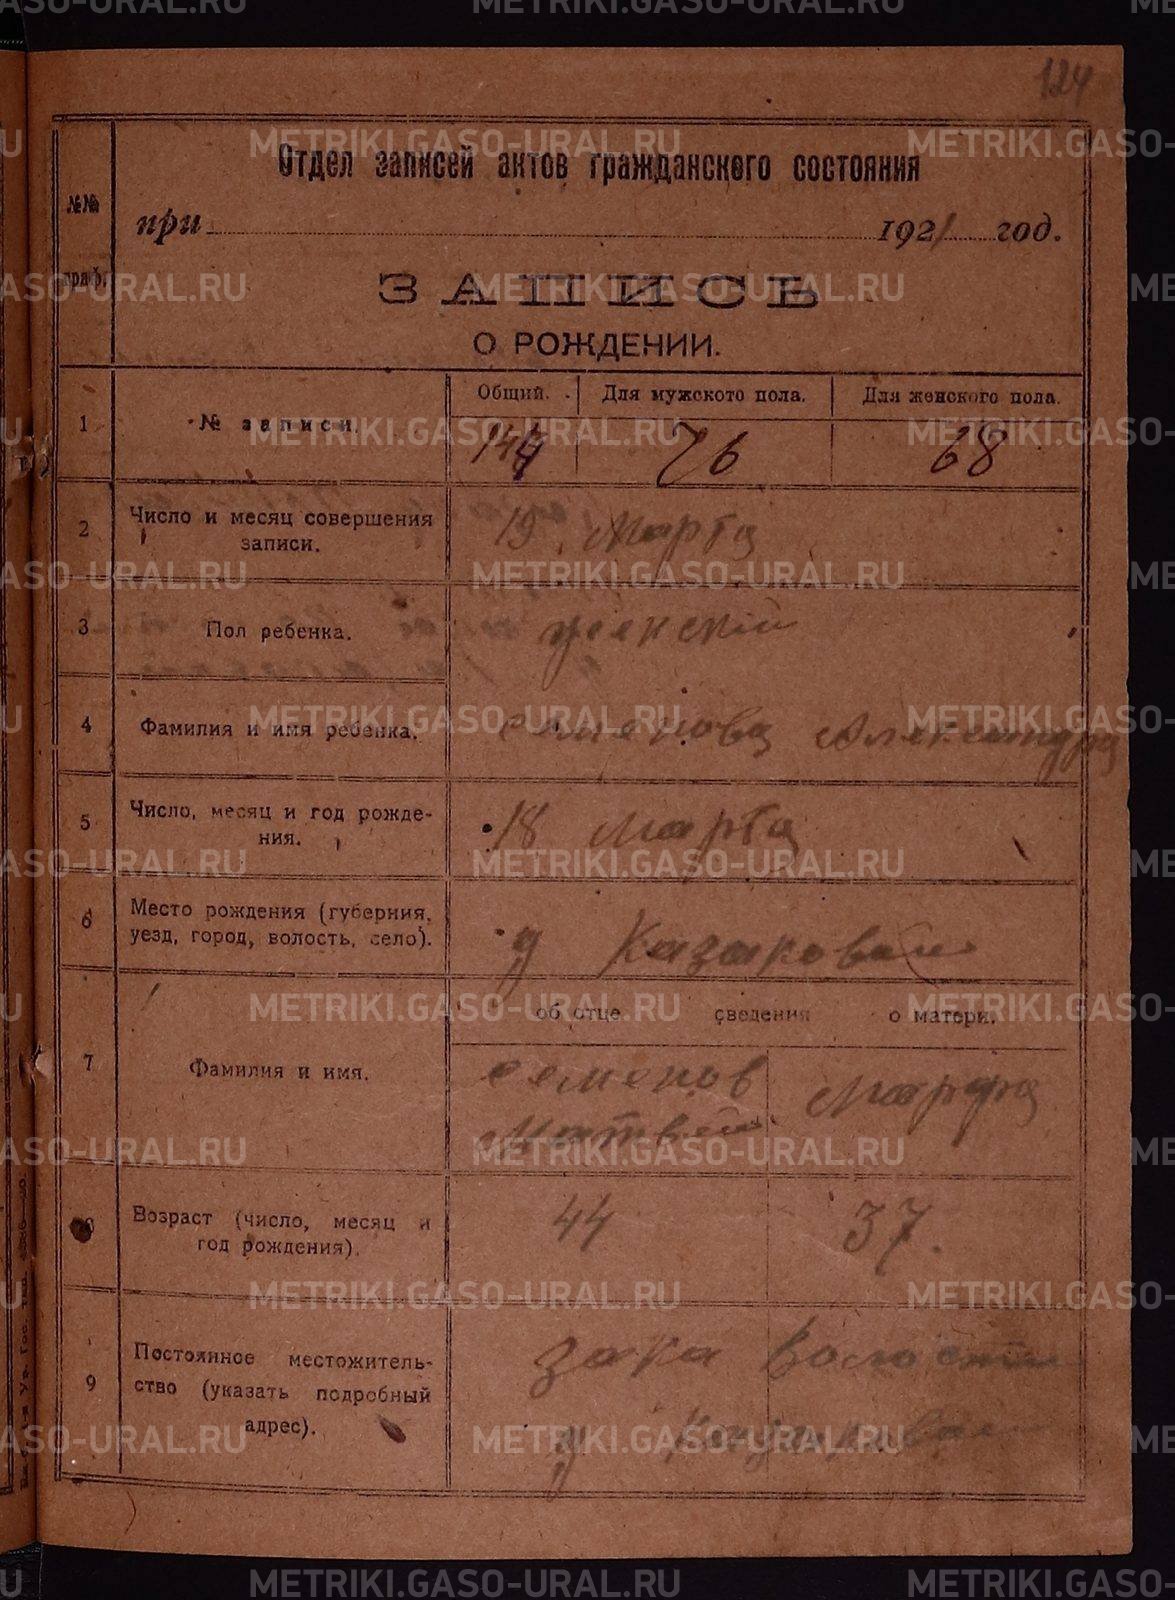 124
Отдел записей актов гражданского состояния
№№ граф.
при 1921 год.
ЗАПИСЬ
О РОЖДЕНИИ.
1
№ записи.
Общий. Для мужского пола. Для женского пола.
144 76 68
2
Число и месяц совершения
записи.
19 Марта
3
Пол ребенка.
женский
4
Фамилия и имя ребенка.
Семенова Александра
5
Число, месяц и год рожде-
ния.
18 Марта
6
Место рождения (губерния,
уезд, город, волость, село).
д Казаковой
7
Фамилия и имя.
об отце сведения о матери.
Семенов
Матвей
Марфа
8
Возраст (число, месяц и
год рождения).
44 37.
9
Постоянное местожитель-
ство (указать подробный
адрес).
волости
д Казаковой
METRIKI.GASO-URAL.RU